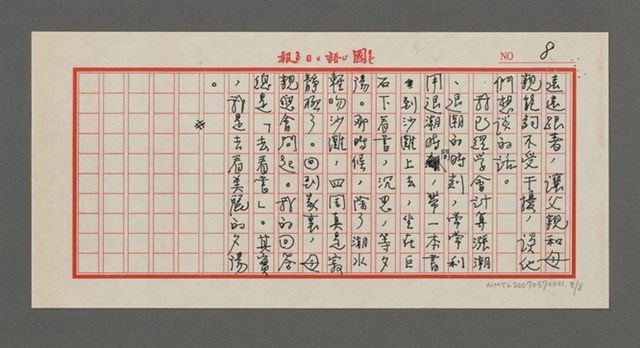 國語日報
NO 8
遠遠跟著,讓父親和母
親能夠不受干擾,談他
們想談的話。
我已經學會計算漲潮
、退潮的時刻,常常利
用退潮時間,帶一本書
到沙灘上去,坐在巨
石下看書,沉思,等夕
陽。那時候,除了潮水
輕吻沙灘,四周真是寂
靜極了。回到家裏,母
親總會問起。我的回答
總是「去看書」。其實
,我是去看美麗的夕陽
。
※
NMTL20070570001, 8/8